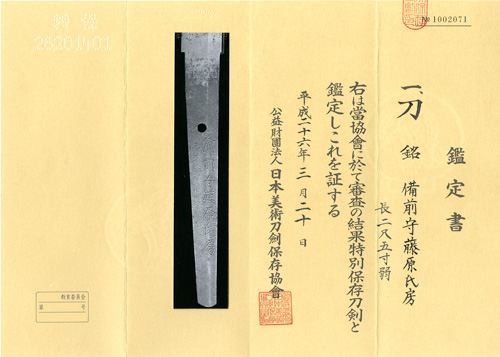 № 1002071
鑑定書
一、刀 銘 備前守藤原氏房
長二尺五寸弱
右は當協會に於て審査の結果特別保存刀剣と
鑑定しこれを証する
平成二十六年三月二十日
公益財團法人 日本美術刀剣保存協會
教育委員会
第 号